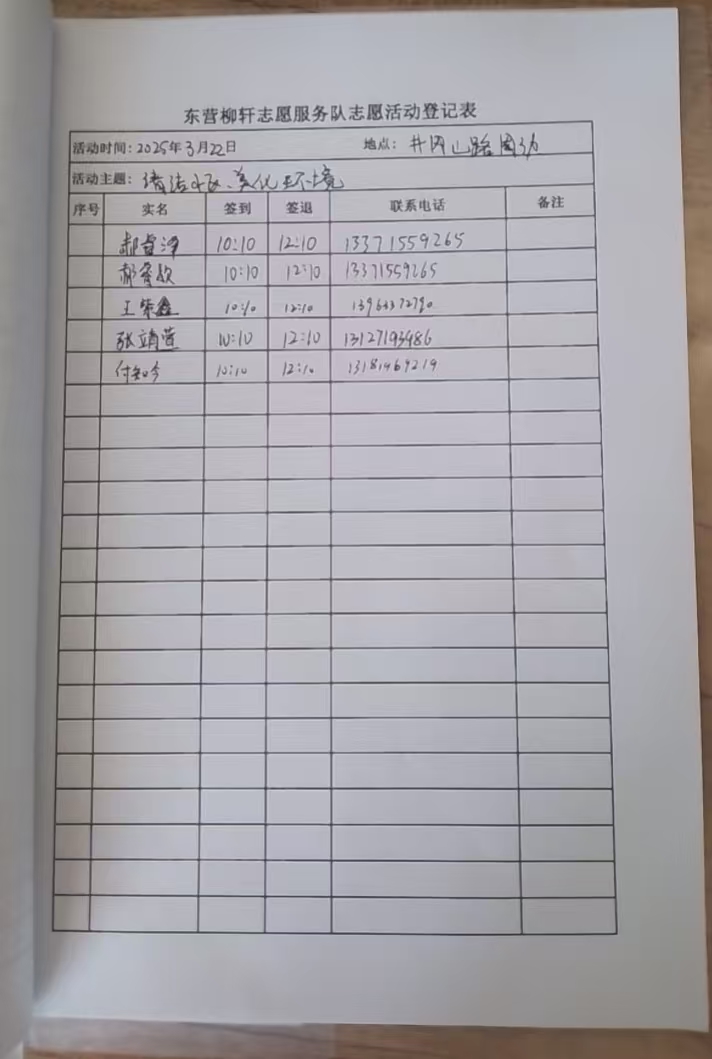 东营柳轩志愿服务队志愿活动登记表
活动时间：2025年3月22日 地点：井冈山路周边
活动主题：清洁 美化环境
序号 实名 签到 签退 联系电话 备注
郝 10:10 12:10 13371559265
郝 10:10 12:10 13371559265
王 鑫 10:10 12:10
张靖萱 10:10 12:10 13127193486
付知今 10:10 12:10 13181469219